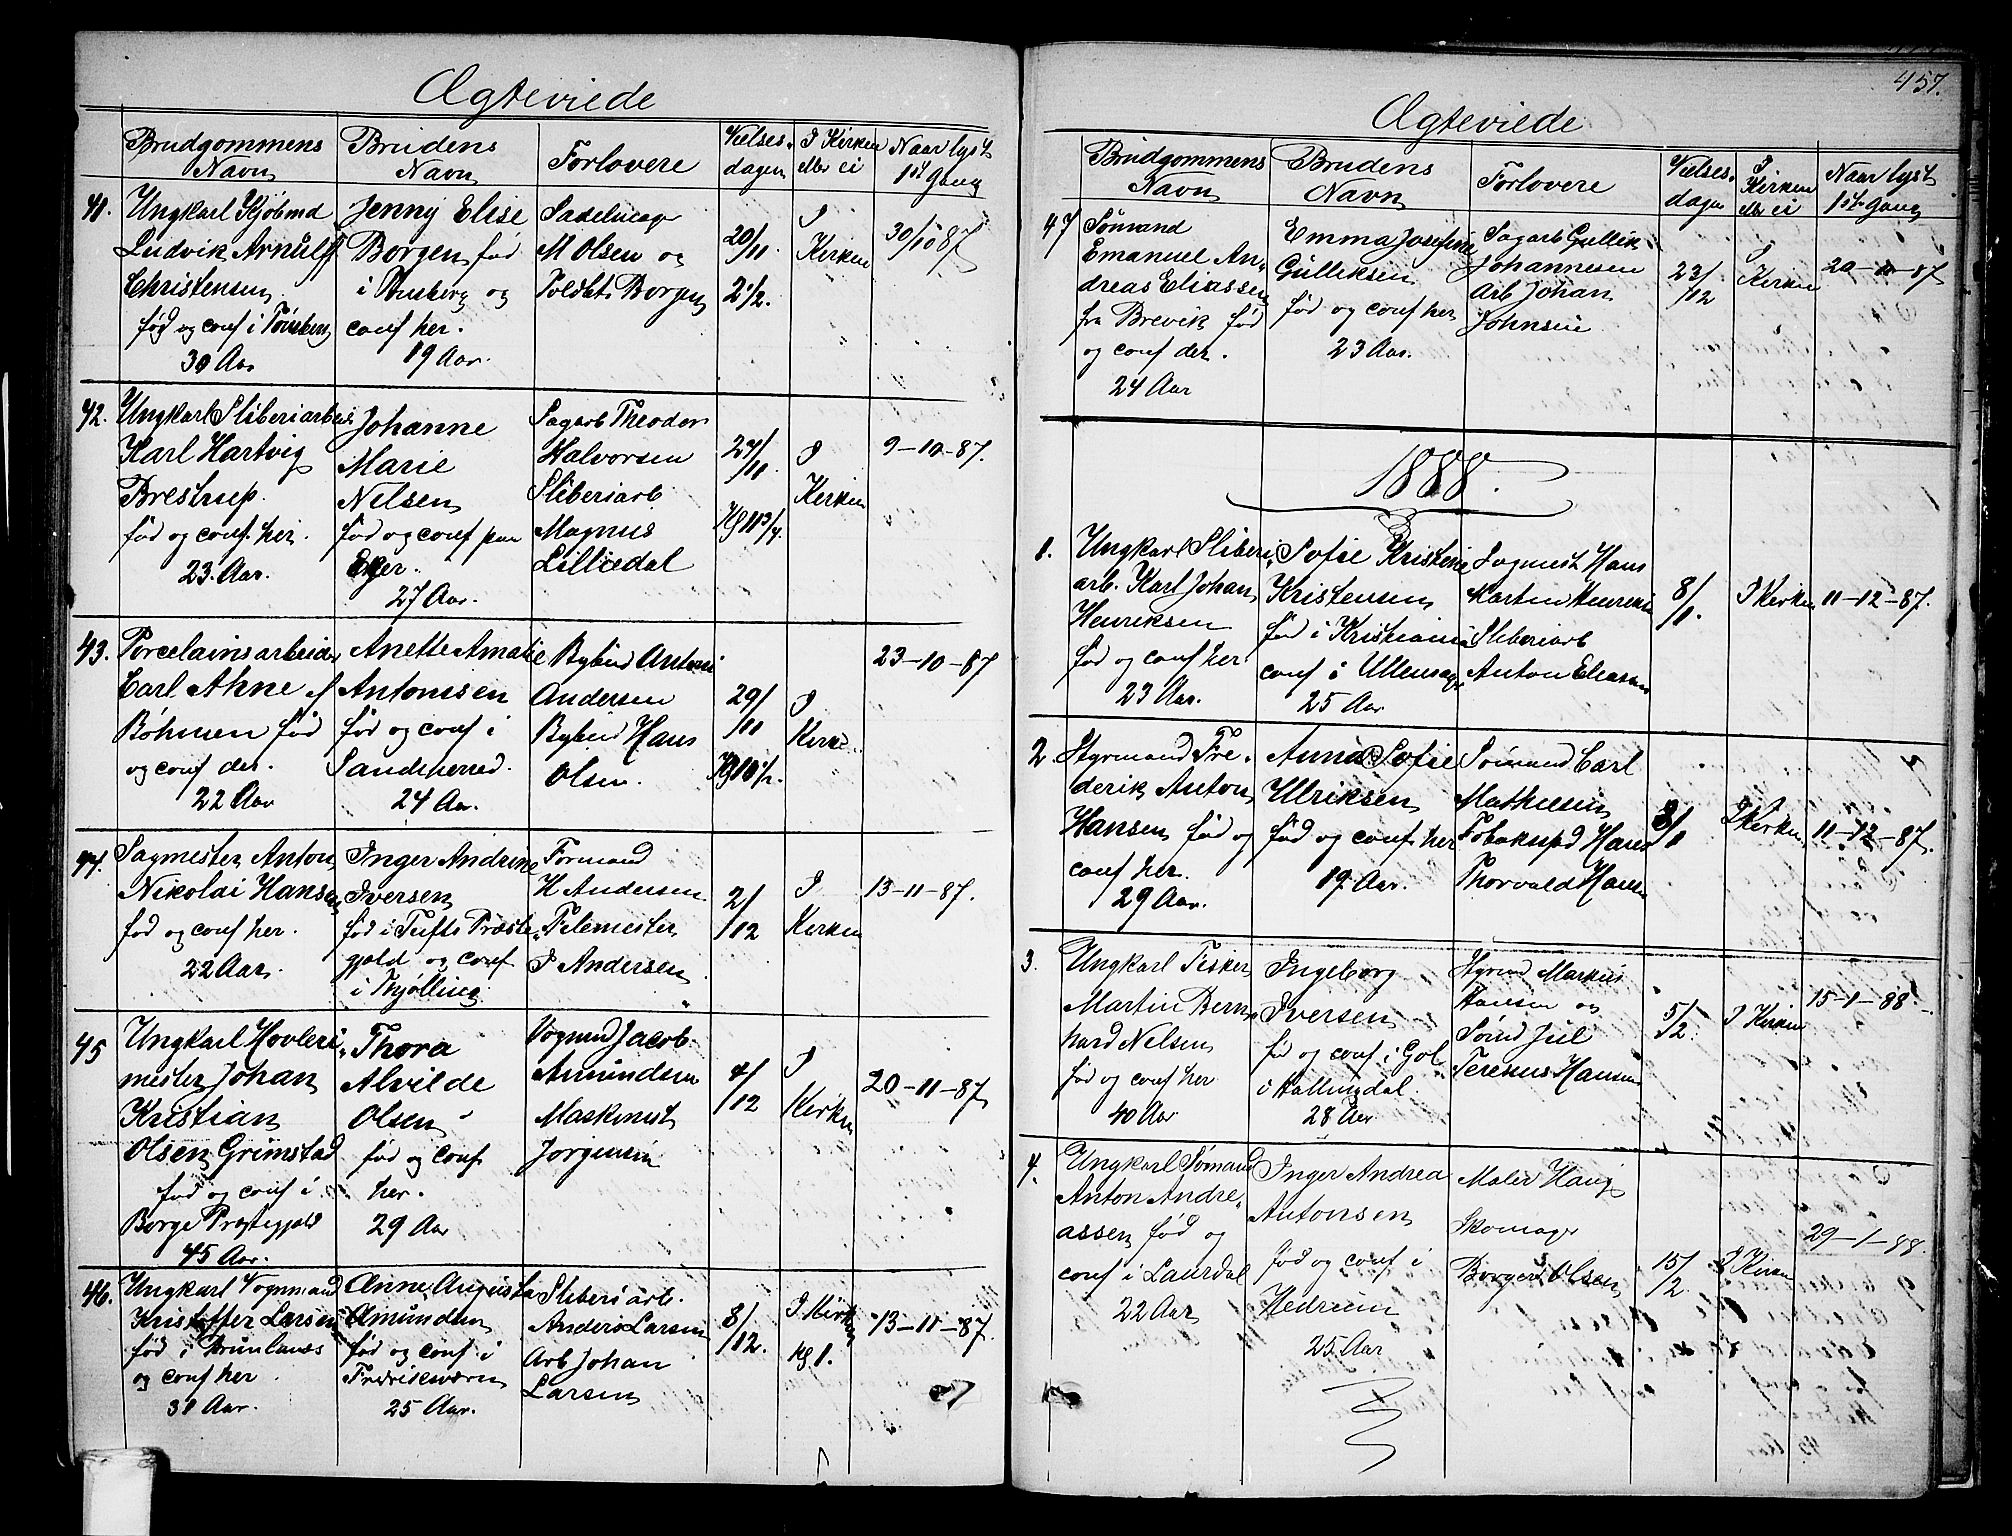 Ægteviede
Brudgommens Navn
Brudens Navn
Forlovere
Vielses-dagen
I Kirken eller ei
Naar lyst 1ste Gang
41.
Ungkarl Kjöbmd
Ludvik Arnulff
Christensen
fød og conf i Tønsberg
30 Aar
Jenny Elise
Borgen fød
i Tønsberg og
conf her.
19 Aar.
Sadelmager
M Olsen og
Toldbt. Borgen
20/11.
2 1/2.
I
Kirken
30/10 87
42.
Ungkarl Sliberiarbeid
Karl Hartvig
Brestrup.
fød og conf. her.
23 Aar.
Johanne
Marie
Nelsen
fød og conf paa
Eger.
27 Aar.
Sagarb Theodor
Halvorsen
Sliberiarb
Magnus
Lilliedal
27/11
Kl 11 3/4.
I
Kirken
9-10-87.
43.
Porcelainsarbeider
Carl Ahne f
Böhmen fød
og conf der.
22 Aar
Anette Amalie
Antonssen
fød og conf i
Sandeherred.
24 Aar.
Bybud Antoni
Andersen
Bybud Hans
Olsen.
29/11
Kl 10 1/2.
I
Kirke
23-10-87
44.
Sagmester Anton
Nikolai Hansen
fød og conf her.
22 Aar.
Inger Andrine
Iversen
fød i Tufts Præste-
gjeld og conf
i Thjølling
Formand
H Andersen
Felemester
I Andersen
2/12
I
Kirken
13-11-87.
45
Ungkarl Hovleri-
mester Johan
Kristian
Olsen Grimstad
fød og conf i
Borge Præstegjæld
45 Aar.
Thora
Alvilde
Olsen
fød og conf
her.
29 Aar
Vognmd Jacob
Amundsen
Maskinist
Jorgensen
4/12
I
Kirken
20-11-87
46.
Ungkarl Vognmand
Kristoffer Larsen
fød i Brunlanes
og conf her
31 Aar.
Anne Augusta
Amundsen
fød og conf i
Fredriksværn
25 Aar.
Sliberiarb.
Anders Larsen
Arb Johan
Larsen
8/12.
I Kirken
Kl 1.
13-11-87.
457.
Ægteviede
Brudgommens Navn
Brudens Navn
Forlovere
Vielses-dagen
I Kirken eller ei
Naar lyst 1ste Gang
47
Sømand
Emanuel An-
dreas Eliassen
fra Brevik fød
og conf der.
24 Aar
Emma Josefine
Gulliksen
fød og conf her
23 Aar.
Sagarb Gullik
Johannesen
Arb Johan
Johnsen
23/12
I
Kirken
20-11-87
1888.
1.
Ungkarl Sliberi-
arb. Karl Johan
Henriksen
fød og conf her
23 Aar.
Sofie Kristine
Kristensen
fød i Kristiania
conf i Ullensager
25 Aar
Sagmest Hans
Martin Henriksen
Sliberiarb
Anton Eliassen
8/1.
I Kirken
11-12-87.
2.
Styrmand Fre-
derik Anton
Hansen fød og
conf her.
29 Aar.
Anna Sofie
Ulriksen
fød og conf her
19 Aar.
Sømand Carl
Mathiesen
Tobaksspd Hans
Thorvald Hansen
8/1
I Kirken
11-12-87.
3.
Ungkarl Fisker
Martin Bern-
hard Nelsen
fød og conf her
40 Aar
Ingeborg
Iversen
fød og conf i Gol
i Hallingdal.
28 Aar
Styrmd Markus
Hansen og
Sømd Juel
Teresius Hansen
5/2.
I Kirken
15-1-88.
4.
Ungkarl Sømand
Anton Andre-
assen fød og
conf i Laurdal
22 Aar
Inger Andrea
Antonsen
fød og conf i
Hedrum
25 Aar
Maler Haug
Skomager
Borger Olsen
15/2.
I Kirken
29-1-88.